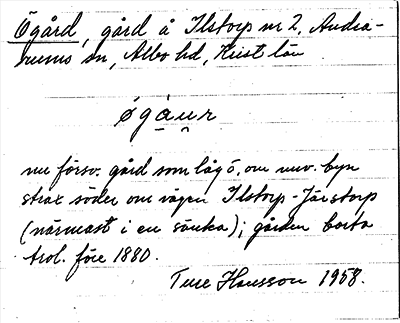 Ögård, gård å Ilstorp nr 2, Andra-
rums sn, Albo hd, Krist län
øgá̱u̯r
nu försv. gård som låg ö. om nuv. byn
strax söder om vägen Ilstorp - Järstorp
(närmast i en sänka); gården borta
trol. före 1880.
Ture Hansson 1958.